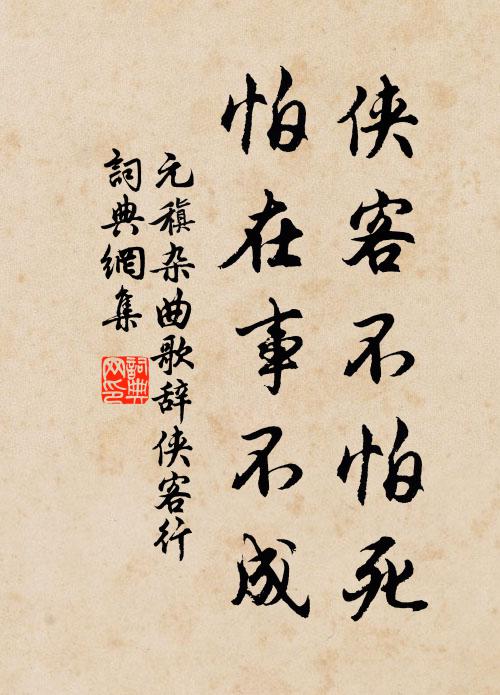 侠客不怕死
怕在事不成
元稹杂曲歌辞侠客行
詞典網集
詞典网印